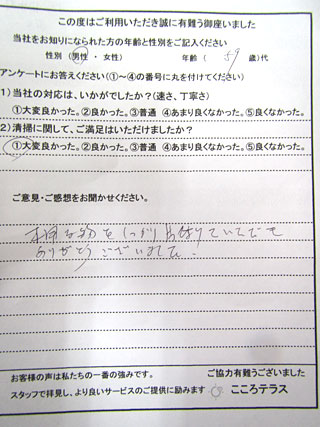 この度はご利用いただき誠に有難う御座いました
当社をお知りになられた方の年齢と性別をご記入ください
性別 (男性 ・ 女性) 年齢 ( 59 歳)代
アンケートにお答えください(①～④の番号に丸を付けてください)
1)当社の対応は、いかがでしたか?(速さ、丁寧さ)
①大変良かった。②良かった。③普通 ④あまり良くなかった。⑤良くなかった。
2)清掃に関して、ご満足はいただけましたか?
①大変良かった。②良かった。③普通 ④あまり良くなかった。⑤良くなかった。
ご意見・ご感想をお聞かせください。
物をしっかり片付けていただき
ありがとうございました。
お客様の声は私たちの一番の強みです。 ご協力有難うございました
スタッフで拝見し、より良いサービスのご提供に励みます こころテラス